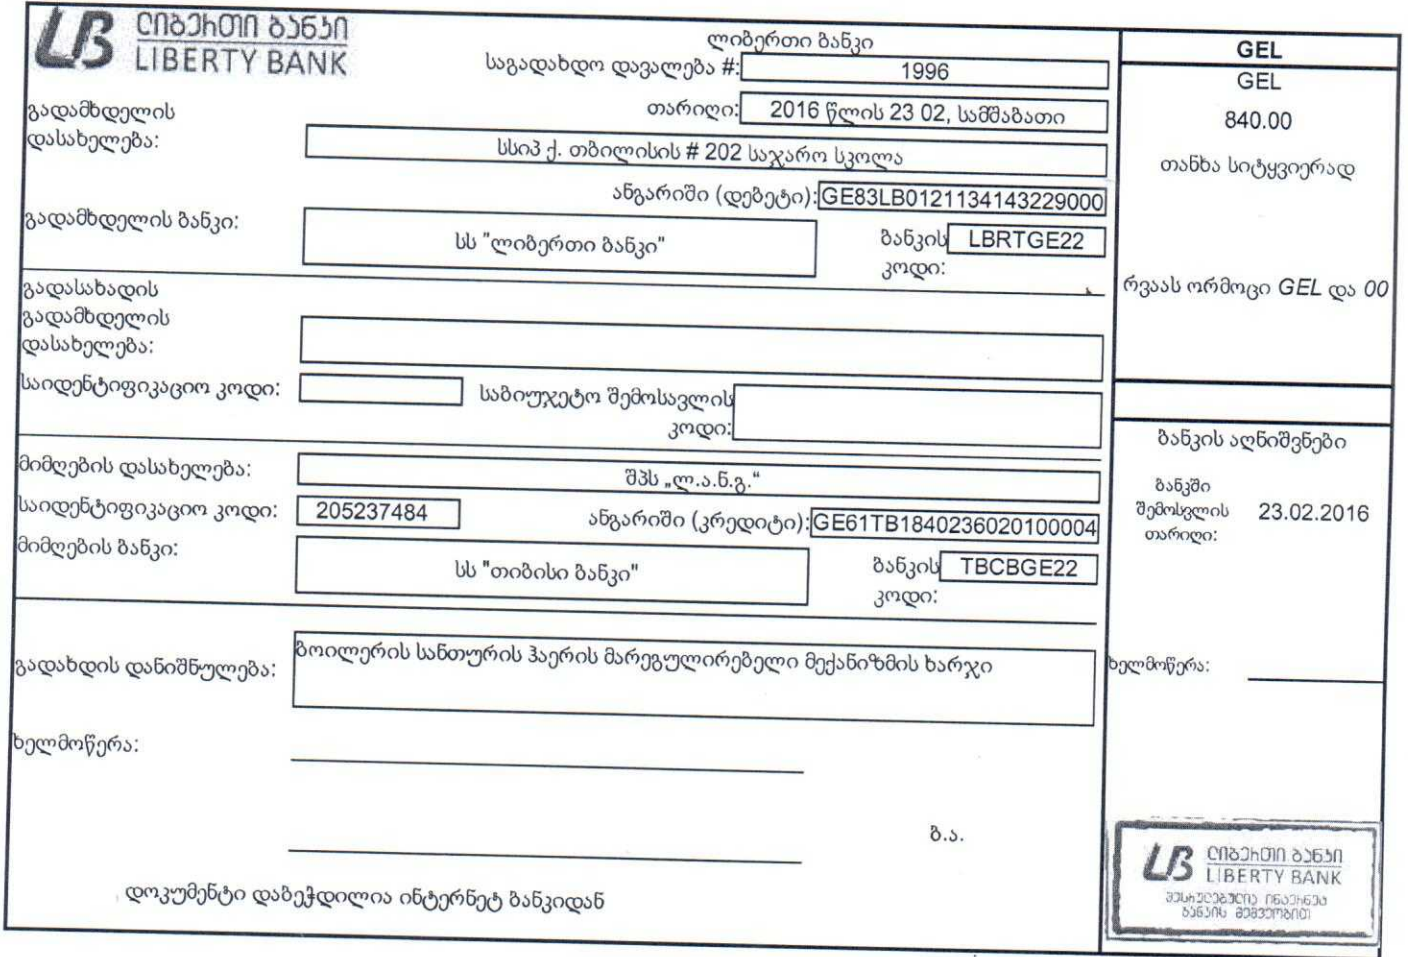 ლიბერთი ბანკი
LIBERTY BANK
ლიბერთი ბანკი
საგადახდო დავალება #: 1996
თარიღი: 2016 წლის 23 02, სამშაბათი
გადამხდელის
დასახელება:
სსიპ ქ. თბილისის # 202 საჯარო სკოლა
ანგარიში (დებეტი): GE83LB0121134143229000
გადამხდელის ბანკი:
სს "ლიბერთი ბანკი"
ბანკის LBRTGE22
კოდი:
გადასახადის
გადამხდელის
დასახელება:
საიდენტიფიკაციო კოდი:
საბიუჯეტო შემოსავლის
კოდი:
მიმღების დასახელება:
შპს „ლ.ა.ნ.გ.“
საიდენტიფიკაციო კოდი: 205237484
ანგარიში (კრედიტი): GE61TB1840236020100004
მიმღების ბანკი:
სს "თიბისი ბანკი"
ბანკის TBCBGE22
კოდი:
გადახდის დანიშნულება:
ბოილერის სანთურის ჰაერის მარეგულირებელი მექანიზმის ხარჯი
ხელმოწერა:
ბ.ა.
დოკუმენტი დაბეჭდილია ინტერნეტ ბანკიდან
GEL
GEL
840.00
თანხა სიტყვიერად
რვაას ორმოცი GEL და 00
ბანკის აღნიშვნები
ბანკში
შემოსვლის
თარიღი:
23.02.2016
ხელმოწერა:
ლიბერთი ბანკი
LIBERTY BANK
შესრულებულია ინტერნეტ
ბანკის მეშვეობით